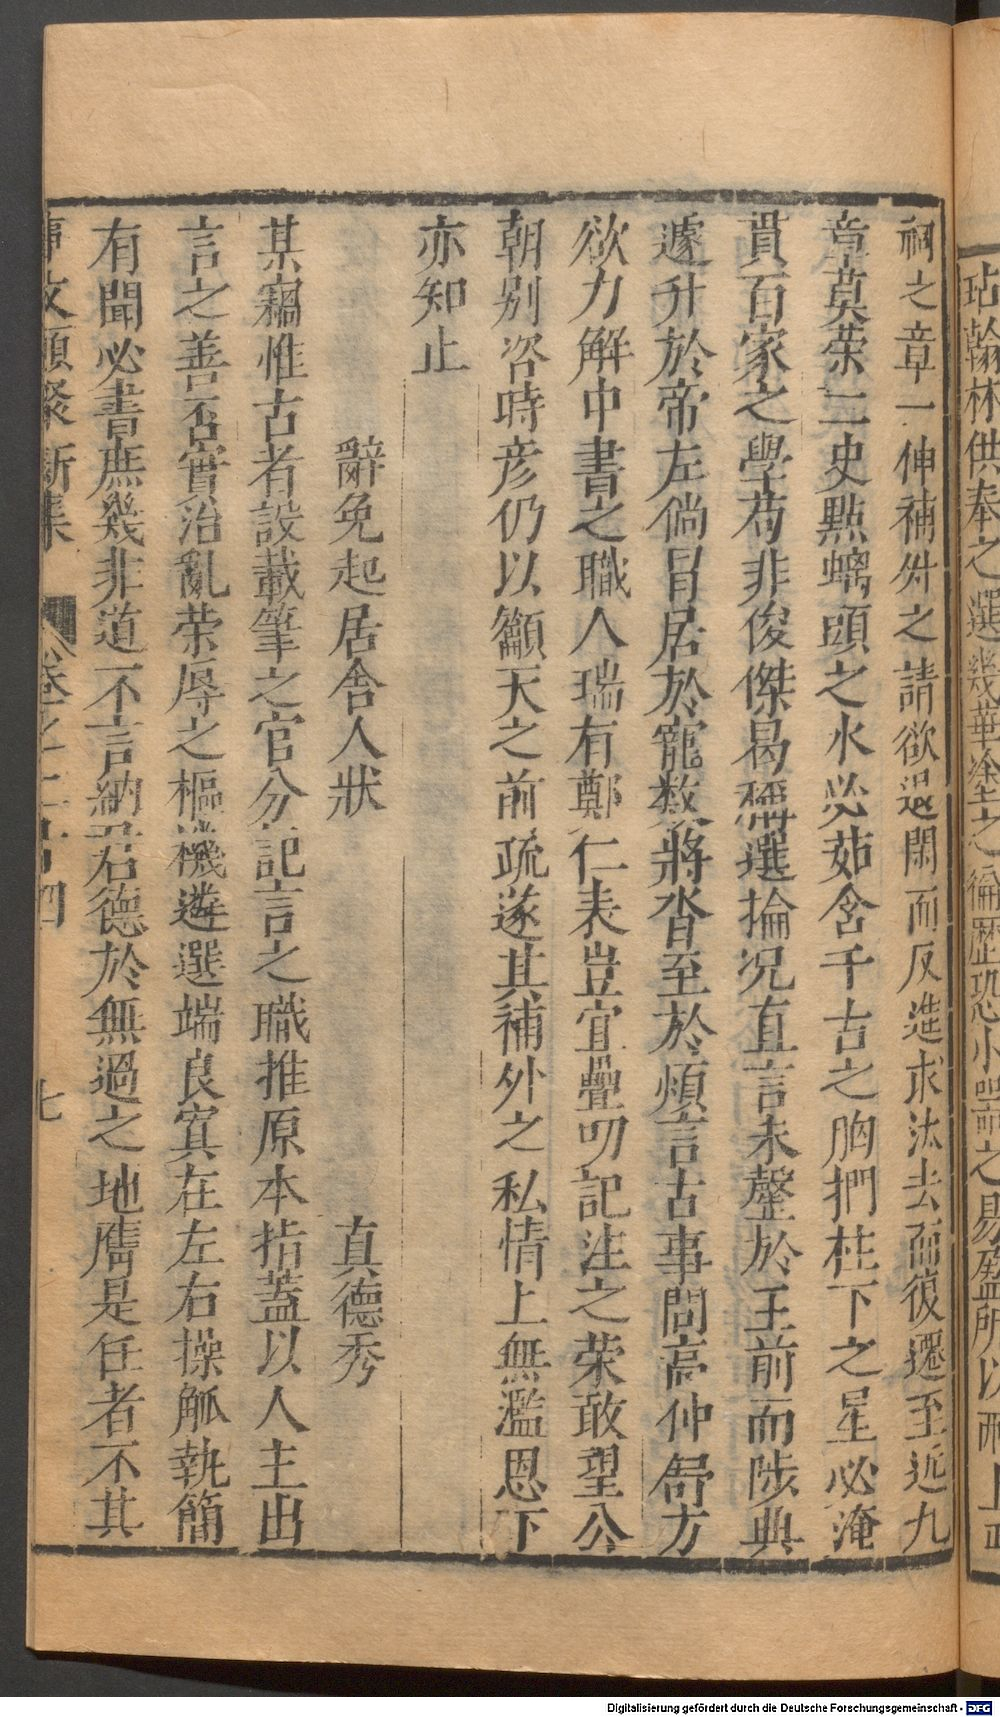 玷翰林供奉之選幾華塗之徧歷恐小器之易盈所以
祠之章一伸補外之請欲退閑而反進求汰去而復遷至近九
章莫荣二史點螭頭之水必茹含千古之胸捫柱下之星必淹
貫百家之學苟非俊傑曷稱選掄况直言未罄於王前而陟典
遽升於帝左倘冐居於寵数將沓至於煩言古事問高仲舒方
欲力解中書之職人瑞有鄭仁表豈宜疊叨記注之荣敢望公
朝别咨時彦仍以籲天之前疏遂其補外之私情上無濫恩下
亦知止
辭免起居舍人狀 真德秀
某竊惟古者設載筆之官分記言之職推原本指蓋以人主出
言之善否實治亂荣辱之樞機遴選端良寘在左右操觚執簡
有聞必書庶幾非道不言納君德於無過之地膺是任者不其
事文類聚新集 卷之二十四 七
Digitalisierung gefördert durch die Deutsche Forschungsgemeinschaft - DFG